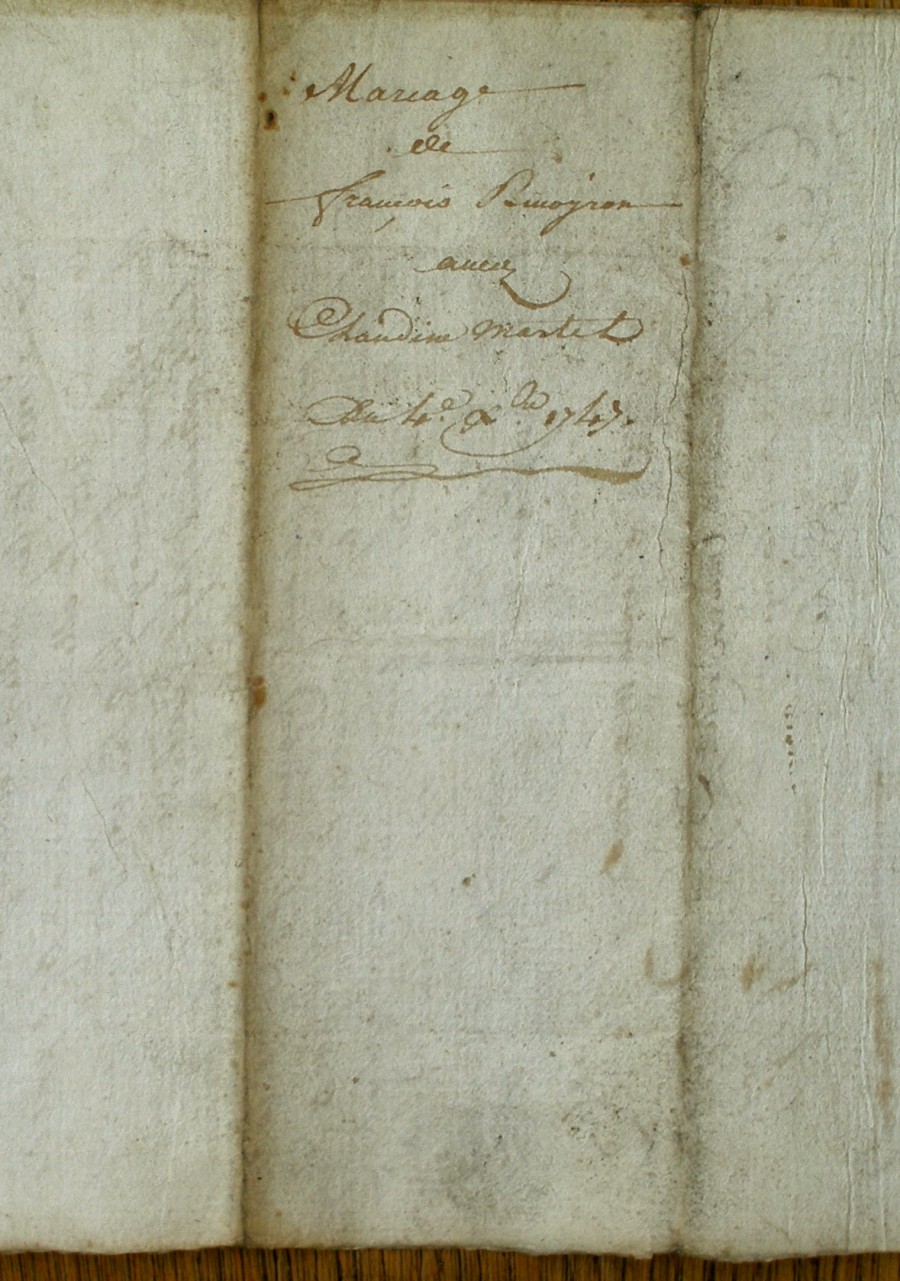 Mariage
de
françois
auecq
Claudine Martel
Du 4e Xbre 1747.